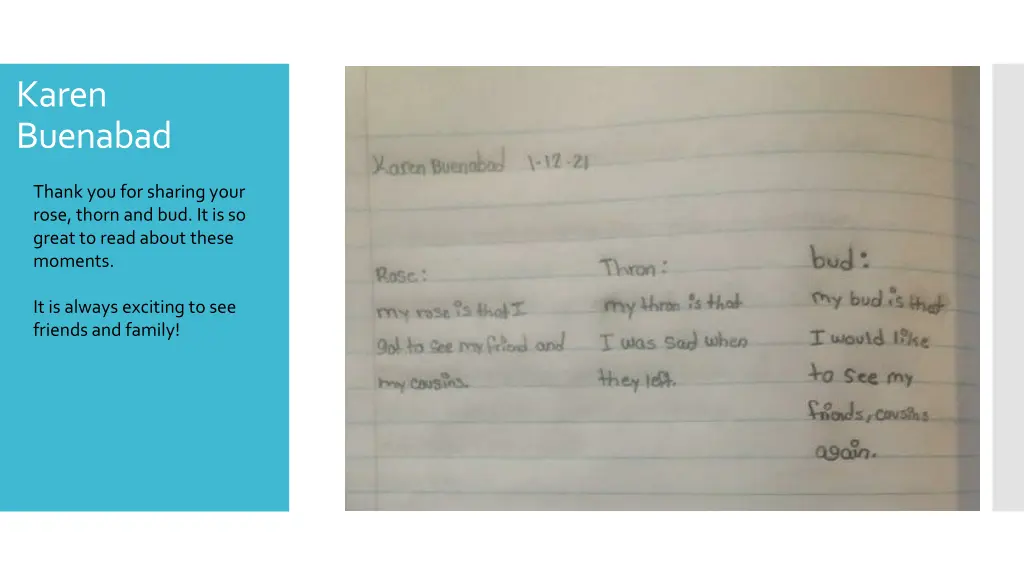 Karen
Buenabad
Thank you for sharing your
rose, thorn and bud. It is so
great to read about these
moments.
It is always exciting to see
friends and family!
Karen Buenabad 1-12-21
Rose:
my rose is that I
got to see my friend and
my cousins.
Thron:
my thron is that
I was sad when
they left.
bud:
my bud is that
I would like
to see my
friends, cousins
again.